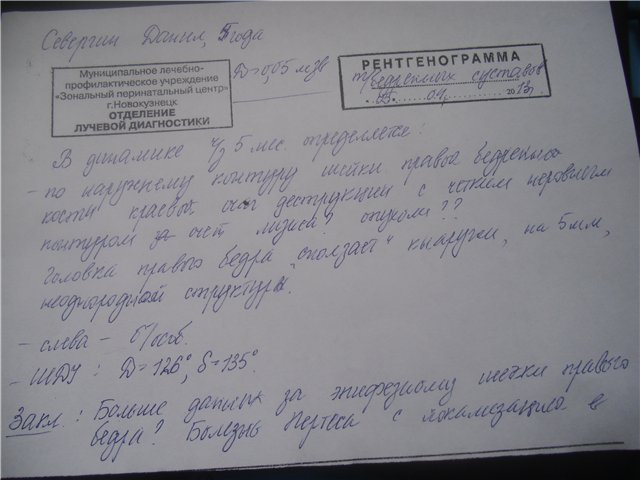 Севергин Данил, 5 года
Муниципальное лечебно-
профилактическое учреждение
«Зональный перинатальный центр»
г.Новокузнецк
ОТДЕЛЕНИЕ
ЛУЧЕВОЙ ДИАГНОСТИКИ
D=0,05 мзв
РЕНТГЕНОГРАММА
т/бедренных суставов
25. 04. 2013г.
В динамике ч/з 5 мес. определяется:
- по наружнему контуру шейки правой бедренной
кости краевый очаг деструкции с четким неровным
контуром за счет лизиса? опухоли??
Головка правого бедра "сползает" кнаружи, на 5мм,
неоднородной структуры.
- слева - б/особ.
- ШДУ: D=126°, S=135°.
Закл.: Больше данных за эпифезиому шейки правого
бедра? Болезнь Пертеса с локализацией в